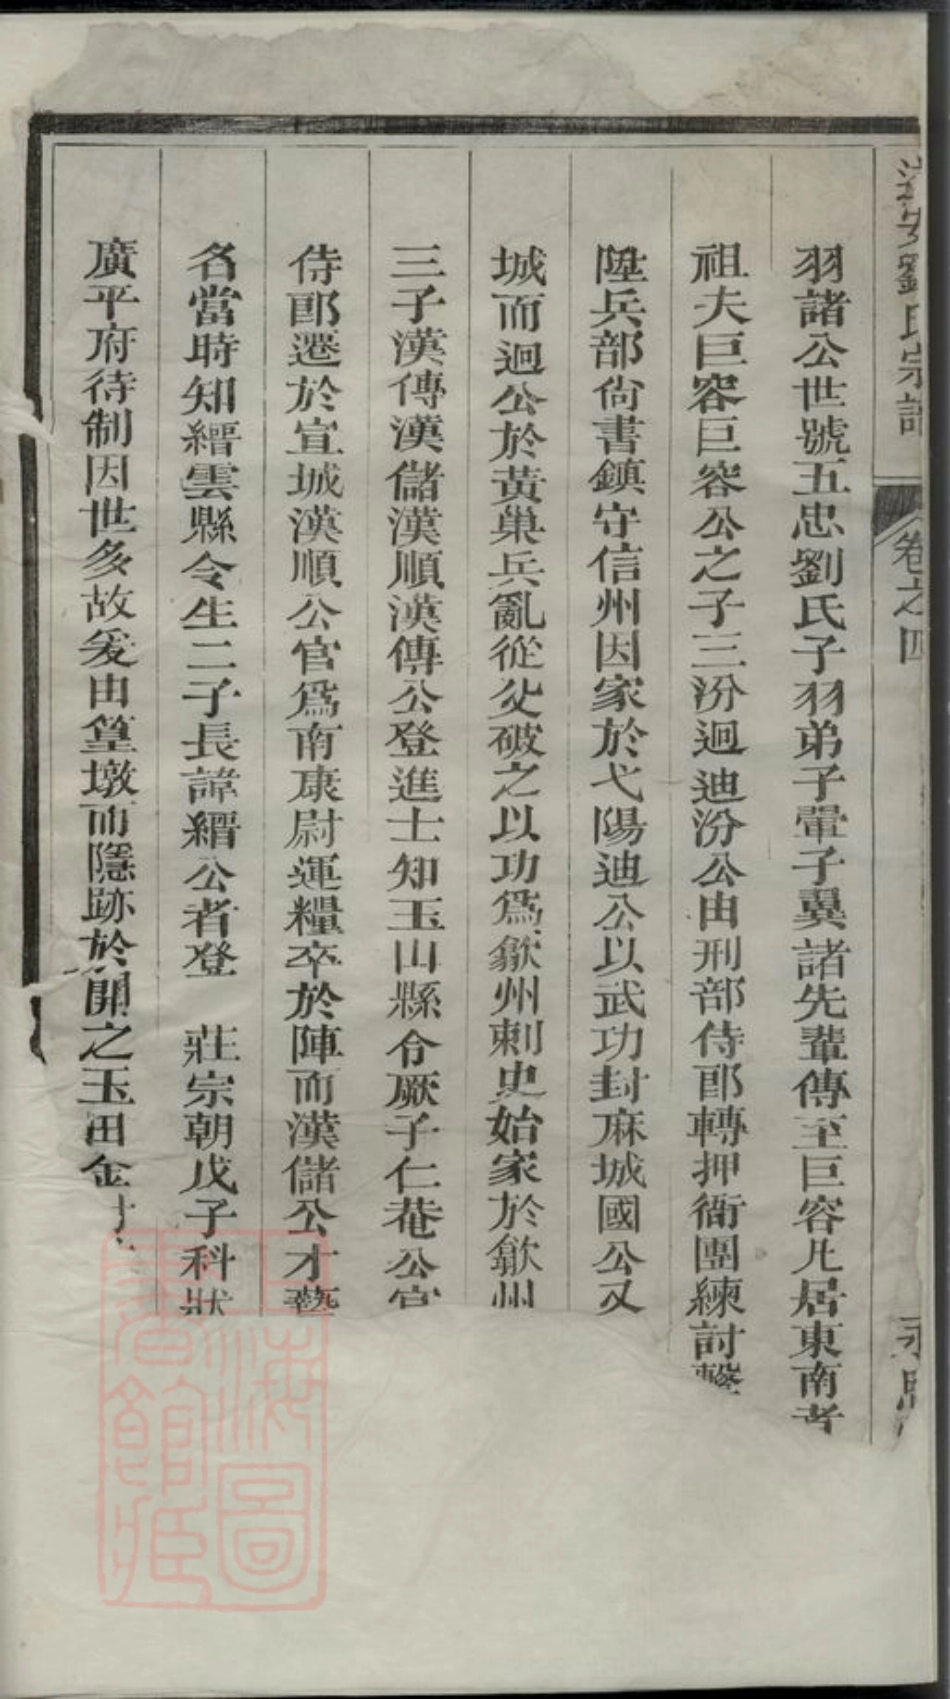 劉氏宗譜
卷之四
羽諸公世號五忠劉氏子羽弟子翬子翼諸先輩傳至巨容凡居東南者
祖夫巨容巨容公之子三汾迴迪汾公由刑部侍郎轉押衙團練討擊
陞兵部尙書鎮守信州因家於弋陽迪公以武功封麻城國公又
城而迴公於黄巢兵亂從父破之以功爲歙州刺史始家於歙州
三子漢傳漢儲漢順漢傳公登進士知玉山縣令厥子仁菴公官
侍郎遷於宣城漢順公官爲南康尉運糧卒於陣而漢儲公才藝
名當時知縉雲縣令生二子長諱縉公者登　莊宗朝戊子科狀
廣平府待制因世多故爰由篁墩而隱跡於開之玉田金村
上海圖書館藏